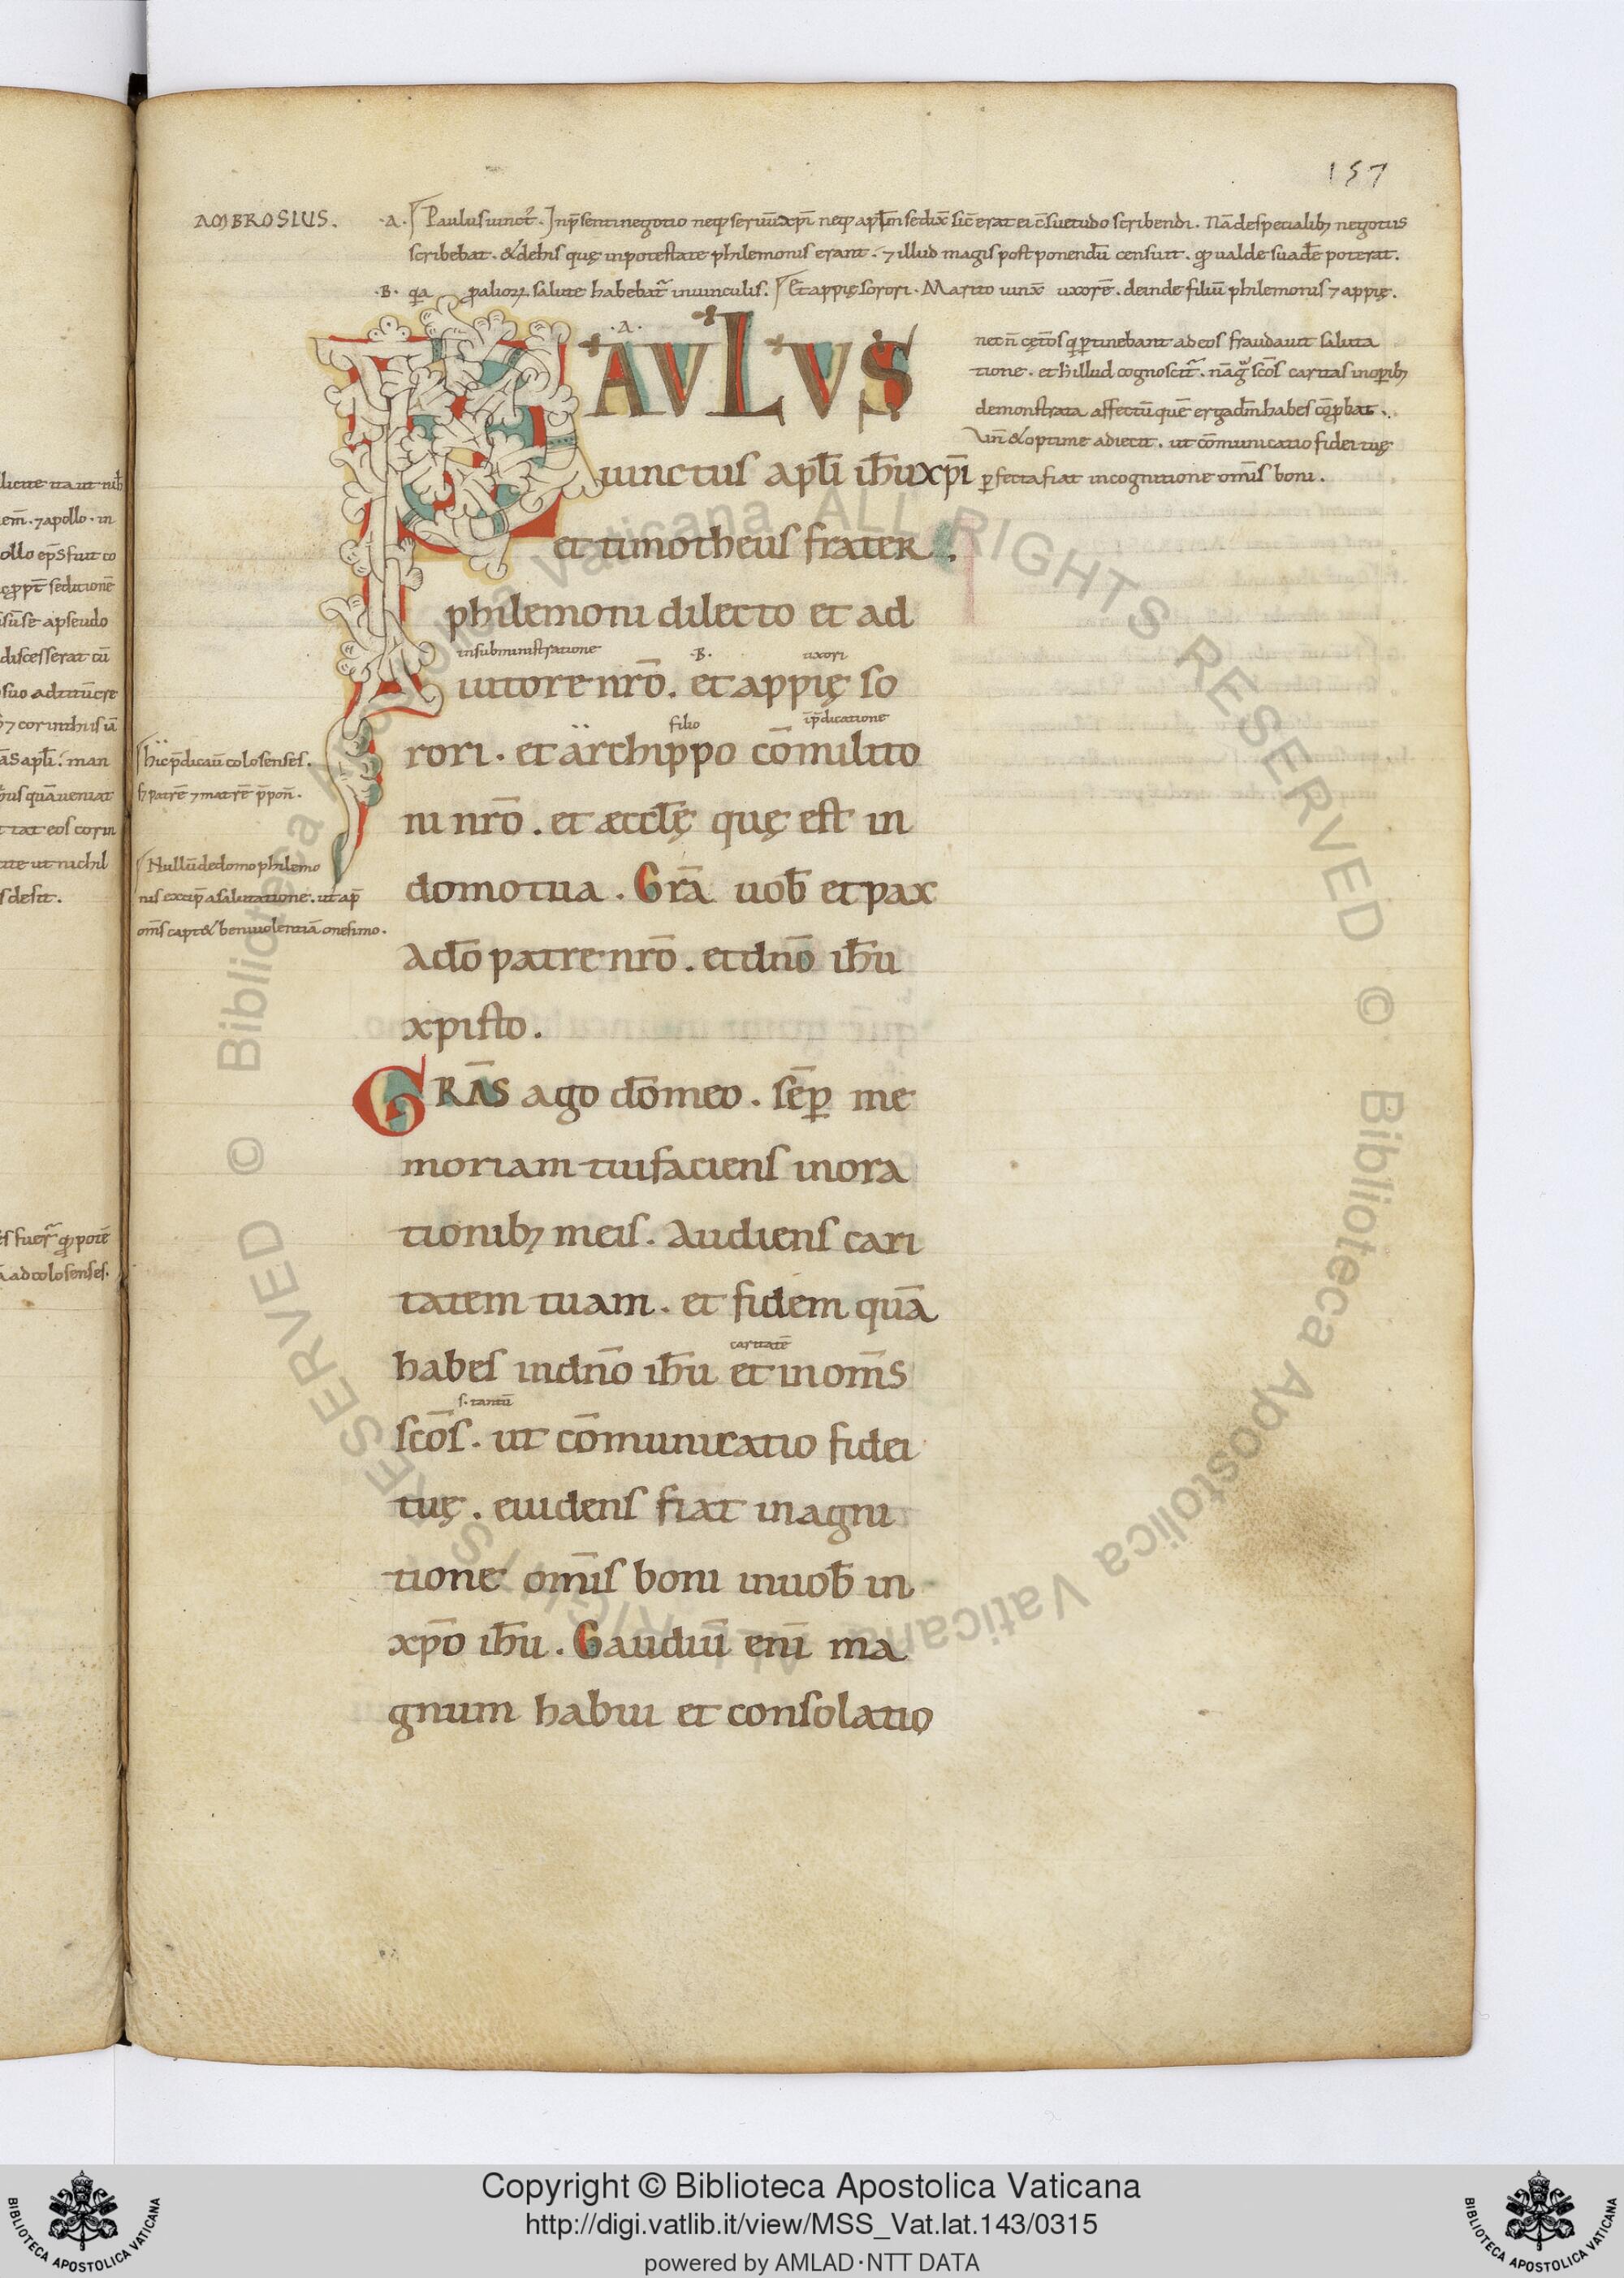 157
AMBROSIUS.
·A· Paulus uinct᷑. In p̄senti negotio neq; seruū xp̄i neq; apl̄m se dix̄ sic̄ erat ei c̄suetudo scribendi. Nā de specialib; negotiis
scribebat. & de his quę in potestate philemonis erant. ⁊ illud magis postponendū censuit. qđ ualde suadē poterat.
·B· q̄a ꝓ alioꝝ salute habebat᷑ in uinculis. Et appię sorori. Marito iunx̄ uxorē. deinde filiū philemonis ⁊ appię.
nec n̄ cęt̄os qi ꝑtinebant ad eos fraudauit saluta
tione. et h̄ illud cognoscit᷑. nā qͣ̄ sc̄os caritas in oꝑib;
demonstrata affectū quē erga dm̄ habes cōꝓbat.
Vn̄ & optime adiecit. ut cōmunicatio fidei tuę
ꝑfecta fiat in cognitione om̄is boni.
·A·
PAULUS
uinctus apl̄i ih̄u xp̄i
et timotheus frater.
philemoni dilecto et ad
in subministratione ·B· uxori
iutore nr̄o. et appię so
filio ī p̄dicatione
rori. et archippo cōmilito
ni nr̄o. et æccl̄ę quę est in
domo tua. Grā uob̄ et pax
A dō patre nr̄o. et dn̄o ih̄u
xpisto.
GRĀS ago dō meo. sēꝑ me
moriam tui faciens in ora
tionib; meis. Audiens cari
tatem tuam. et fidem quā
caritatē
habes in dn̄o ih̄u et in om̄s
s. tantū
sc̄os. ut cōmunicatio fidei
tuę. euidens fiat in agni
tione om̄is boni in uob̄ in
xp̄o ih̄u. Gaudiū enī ma
gnum habui et consolatio
Hic p̄dicau̅ colosenses.
⁊ patrē ⁊ matrē p̄pon̄.
Nullū de domo philemo
nis excip̄ a salutatione. ut ap̄
om̄s capt& beniuolentiā onesimo.
em̄. ⁊ apollo. in
ollo ep̄s fuit co
discesserat cū
⁊ corinthis iā
ās apl̄i. man
us quā ueniat
tat eos corin
ite ut nichil
s desit.
ā ad colosenses.
© Biblioteca Apostolica Vaticana ALL RIGHTS RESERVED © Biblioteca Apostolica Vaticana ALL RIGHTS RESERVED
Copyright © Biblioteca Apostolica Vaticana
http://digi.vatlib.it/view/MSS_Vat.lat.143/0315
powered by AMLAD·NTT DATA
BIBLIOTECA APOSTOLICA VATICANA
BIBLIOTECA APOSTOLICA VATICANA